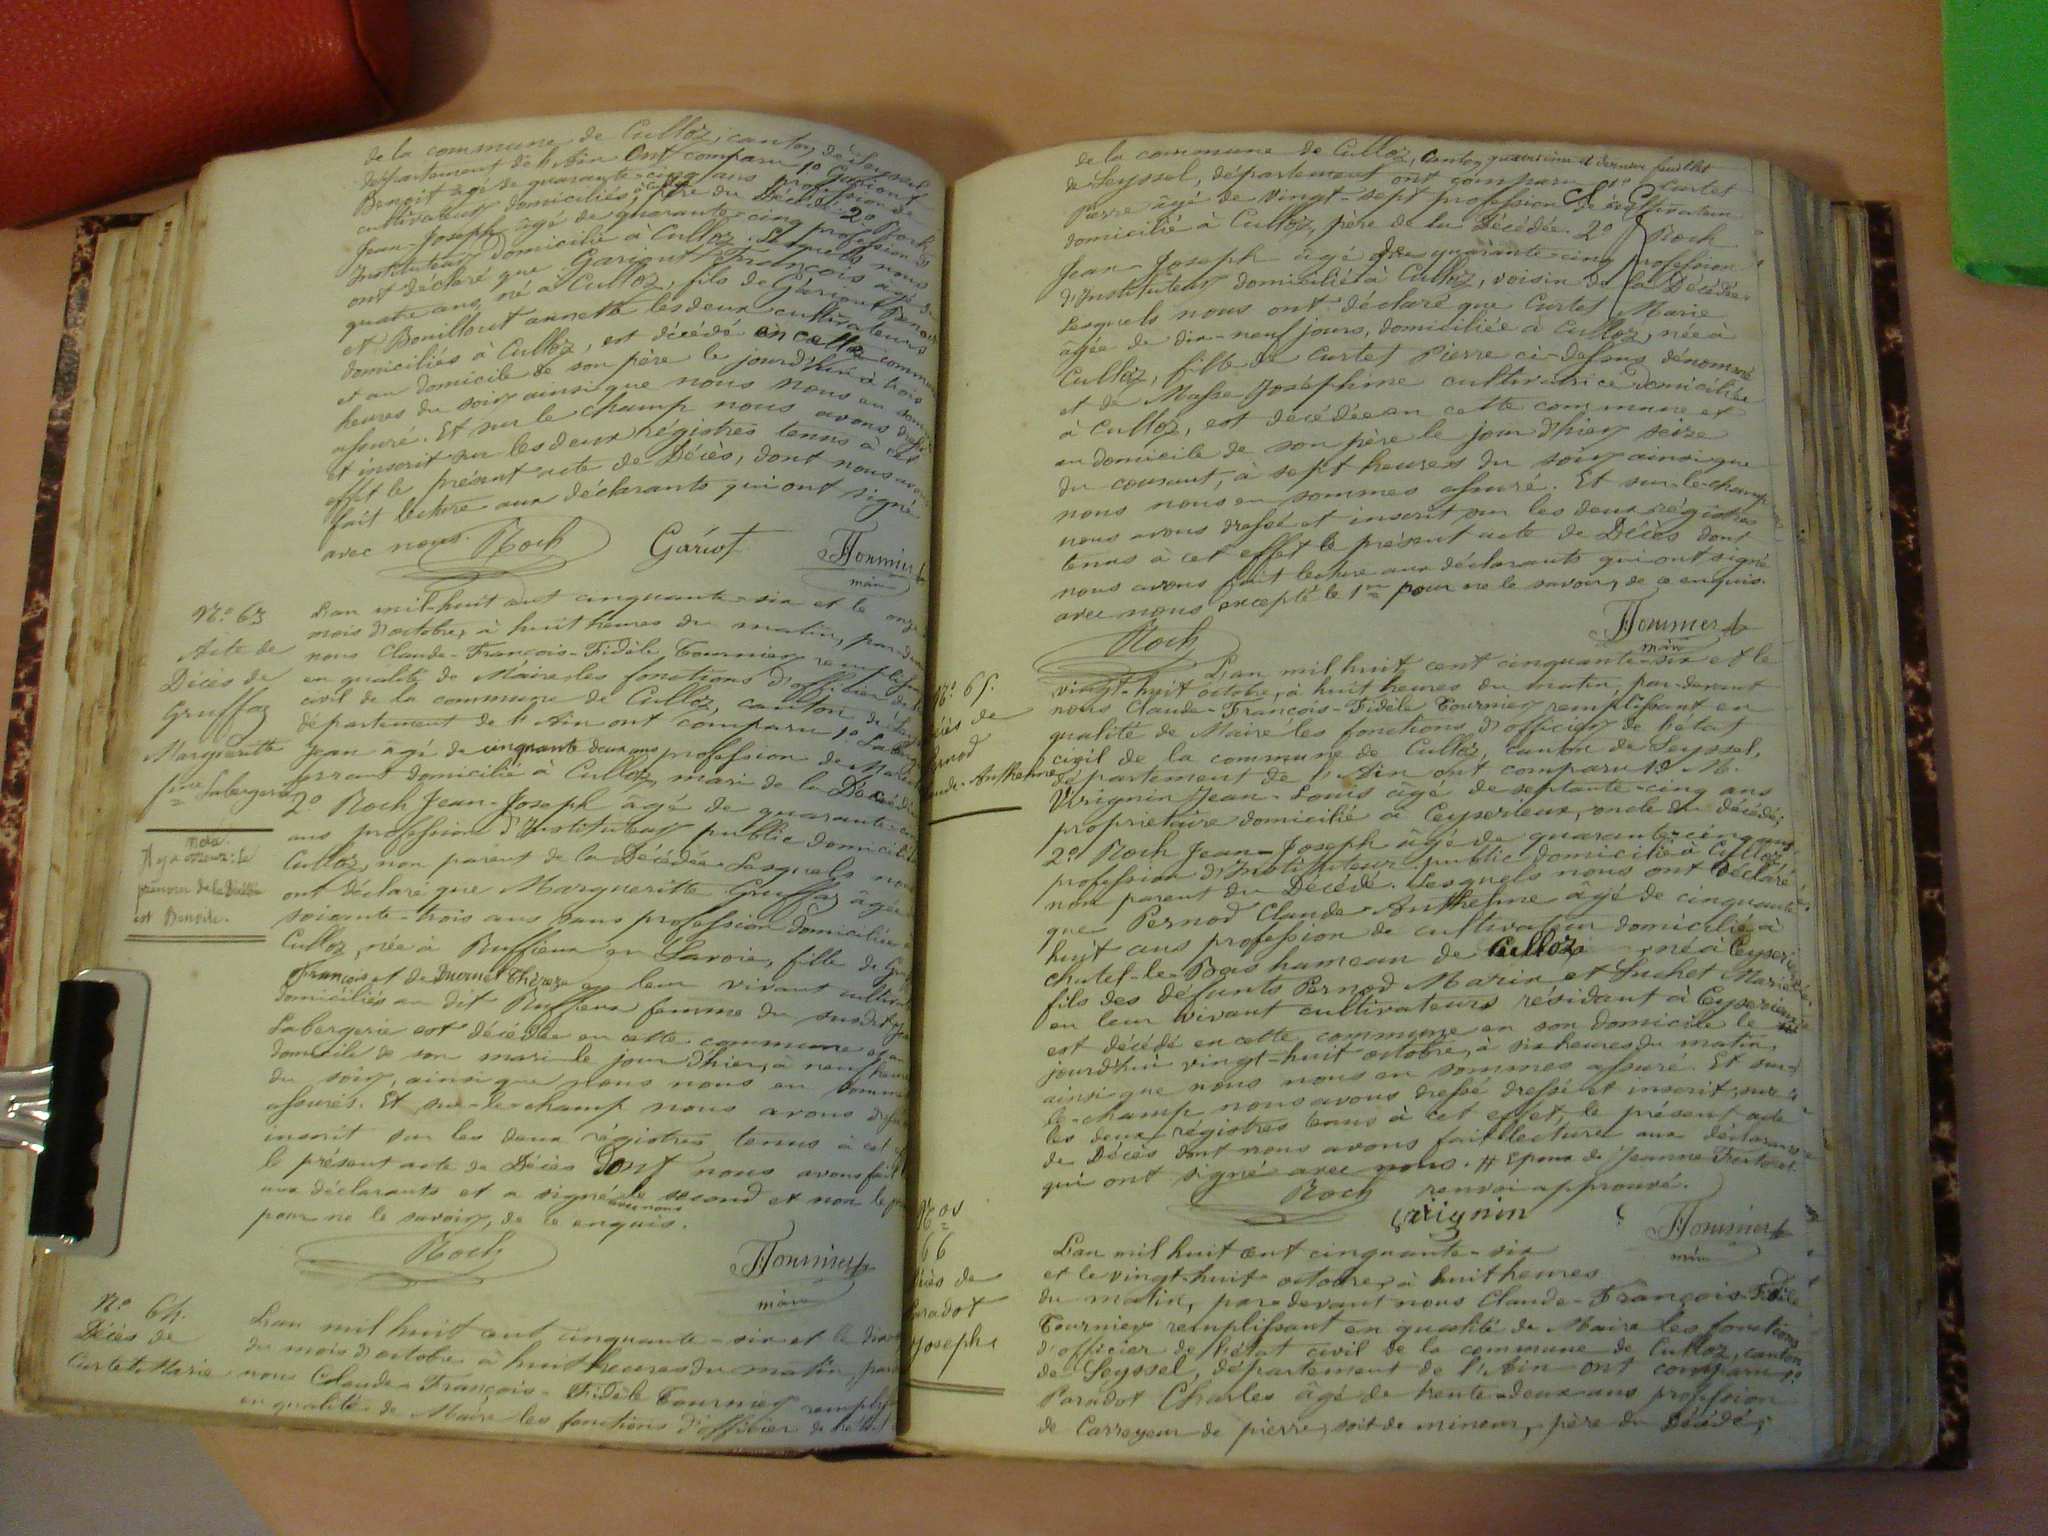 de la commune de Culloz, canton de Seyssel
département de l'Ain Ont comparu 1º Gariout
Benoit âgé de quarante-cinq ans profession de
cultivateur domiciliés, père du Décédé 2º Roch
Jean-Joseph âgé de quarante-cinq profession
Instituteur domicilié à Culloz. Lesquels nous
ont déclaré que Gariout François âgé de
quatre ans, né à Culloz, fils de Gariout Benoit
et Bouillout annette les deux cultivateurs
domiciliés à Culloz, est décédé en cette commune
et au domicile de son père le jourd'hui à trois
heures du soir ainsi que nous nous en sommes
assuré. Et sur le champ nous avons dressé
et inscrit sur les deux régistres tenus à cet
effet le présent acte de Décès, dont nous avons
fait lecture aux déclarants qui ont signé
avec nous. Roch Gariot Tournier
maire
Nº 63
Acte de
Décès de
Gruffaz
Margueritte
fme Labergerie
nota
Il y a erreur: le
prénom de la Décédée
est Benoite.
L'an mil-huit cent cinquante-six et le onze
mois d'octobre, à huit heures du matin, par-devant
nous Claude-François-Fidèle Tournier remplissant
en qualité de Maire les fonctions d'officier de l'état
civil de la commune de Culloz, canton de Seyssel
département de l'Ain ont comparu 1º Labergerie
Jean âgé de cinquante deux ans profession de
domicilié à Culloz, mari de la Décédée
2º Roch Jean-Joseph âgé de quarante-cinq
ans profession d'Instituteur public domicilié
Culloz, non parent de la Décédée. Lesquels nous
ont déclaré que Margueritte Gruffaz âgée
soixante-trois ans sans profession domiciliée à
Culloz, née à Ruffieux en Savoie, fille de
François et de Ducruet Thérèse en leur vivant
domiciliés au dit Ruffieux femme du susdit
Labergerie est décédée en cette commune et au
domicile de son mari le jour d'hier, à neuf heures
du soir, ainsi que nous nous en sommes
assurés. Et sur-le-champ nous avons dressé
inscrit sur les deux régistres tenus à cet
le présent acte de Décès dont nous avons fait
aux déclarants et a signé avec nous le second et non le
pour ne le savoir, de ce enquis.
Roch Tournier
maire
Nº 64.
Décès de
Curtet Marie
L'an mil huit cent cinquante-six et le
du mois d'octobre à huit heures du matin par
nous Claude-François-Fidèle Tournier
en qualité de Maire les fonctions d'officier de l'état
de la commune de Culloz, canton quatrième et dernier feuillet
de Seyssel, département ont comparu 1º Curtet
Pierre âgé de vingt-sept profession de cultivateur
domicilié à Culloz, père de la Décédée. 2º Roch
Jean-Joseph âgé de quarante-cinq profession
d'Instituteur domicilié à Culloz, voisin de la Décédée.
Lesquels nous ont déclaré que Curtet Marie
âgée de dix-neuf jours, domiciliée à Culloz, née à
Culloz, fille de Curtet Pierre ci-dessus dénommé
et de Masse Joséphine cultivatrice domiciliée
à Culloz, est décédée en cette commune et
au domicile de son père le jour d'hier seize
du courant, à sept heures du soir ainsi que
nous nous en sommes assuré. Et sur-le-champ
nous avons dressé et inscrit sur les deux régistres
tenus à cet effet le présent acte de Décès dont
nous avons fait lecture aux déclarants qui ont signé
avec nous excepté le 1er pour ne le savoir, de ce enquis.
Roch Tournier
maire
Nº 65.
Décès de
Pernod
Claude-Anthelme
L'an mil huit cent cinquante-six et le
vingt-huit octobre, à huit heures du matin, par-devant
nous Claude-François-Fidèle Tournier remplissant en
qualité de Maire les fonctions d'officier de l'état
civil de la commune de Culloz, canton de Seyssel,
département de l'Ain ont comparu 1º M.
Virignin Jean-Louis âgé de septante-cinq ans
proprietaire domicilié à Ceyserieux, oncle du décédé;
2º Roch Jean-Joseph âgé de quarante-cinq ans
profession d'Instituteur public domicilié à Culloz,
non parent du Décédé. Lesquels nous ont déclaré
que Pernod Claude-Anthelme âgé de cinquante
huit ans profession de cultivateur domicilié à
chatel-le-Bas hameau de Culloz né à Ceyserieux
fils des défunts Pernod Marin et Luchet Marie
en leur vivant cultivateurs résidant à Ceyserieux
est décédé en cette commune en son domicile le
jourd'hui vingt-huit octobre, à six heures du matin,
ainsi que nous nous en sommes assuré. Et sur-
le-champ nous avons dressé dressé et inscrit sur
les deux régistres tenus à cet effet, le présent acte
de Décès dont nous avons fait lecture aux déclarants
qui ont signé avec nous. # Epoux de Jeanne
Roch renvoi approuvé.
Virignin Tournier
maire
Nº
66
Décès de
Paradot
Joseph
L'an mil huit cent cinquante-six
et le vingt-huit octobre, à huit heures
du matin, par-devant nous Claude-François-Fidèle
Tournier remplissant en qualité de Maire les fonctions
d'officier de l'état civil de la commune de Culloz, canton
de Seyssel, département de l'Ain ont comparu 1º
Paradot Charles âgé de trente-deux ans profession
de Carreyeur de pierre, soit de mineur, père du Décédé;